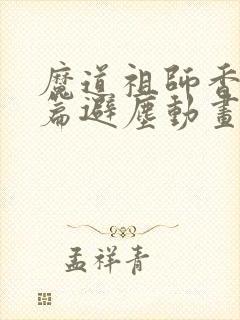 魔道祖師香
篇避塵動畫
孟祥青